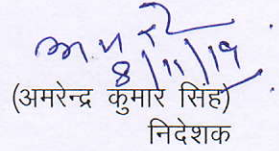 8/11/19
(अमरेन्द्र कुमार सिंह)
निदेशक